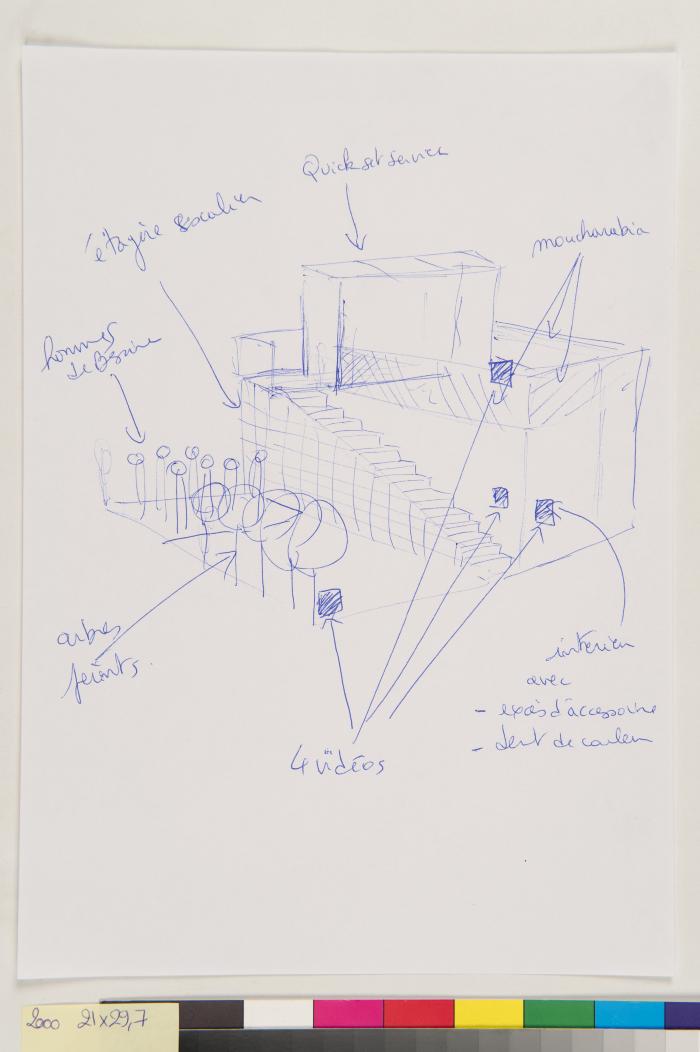 Quick set service
étagère escalier
moucharabia
hommes
de Bessine
arbres
peints.
intérieur
avec
- excès d'accessoire
- de couleur
4 vidéos
2000 21x29,7